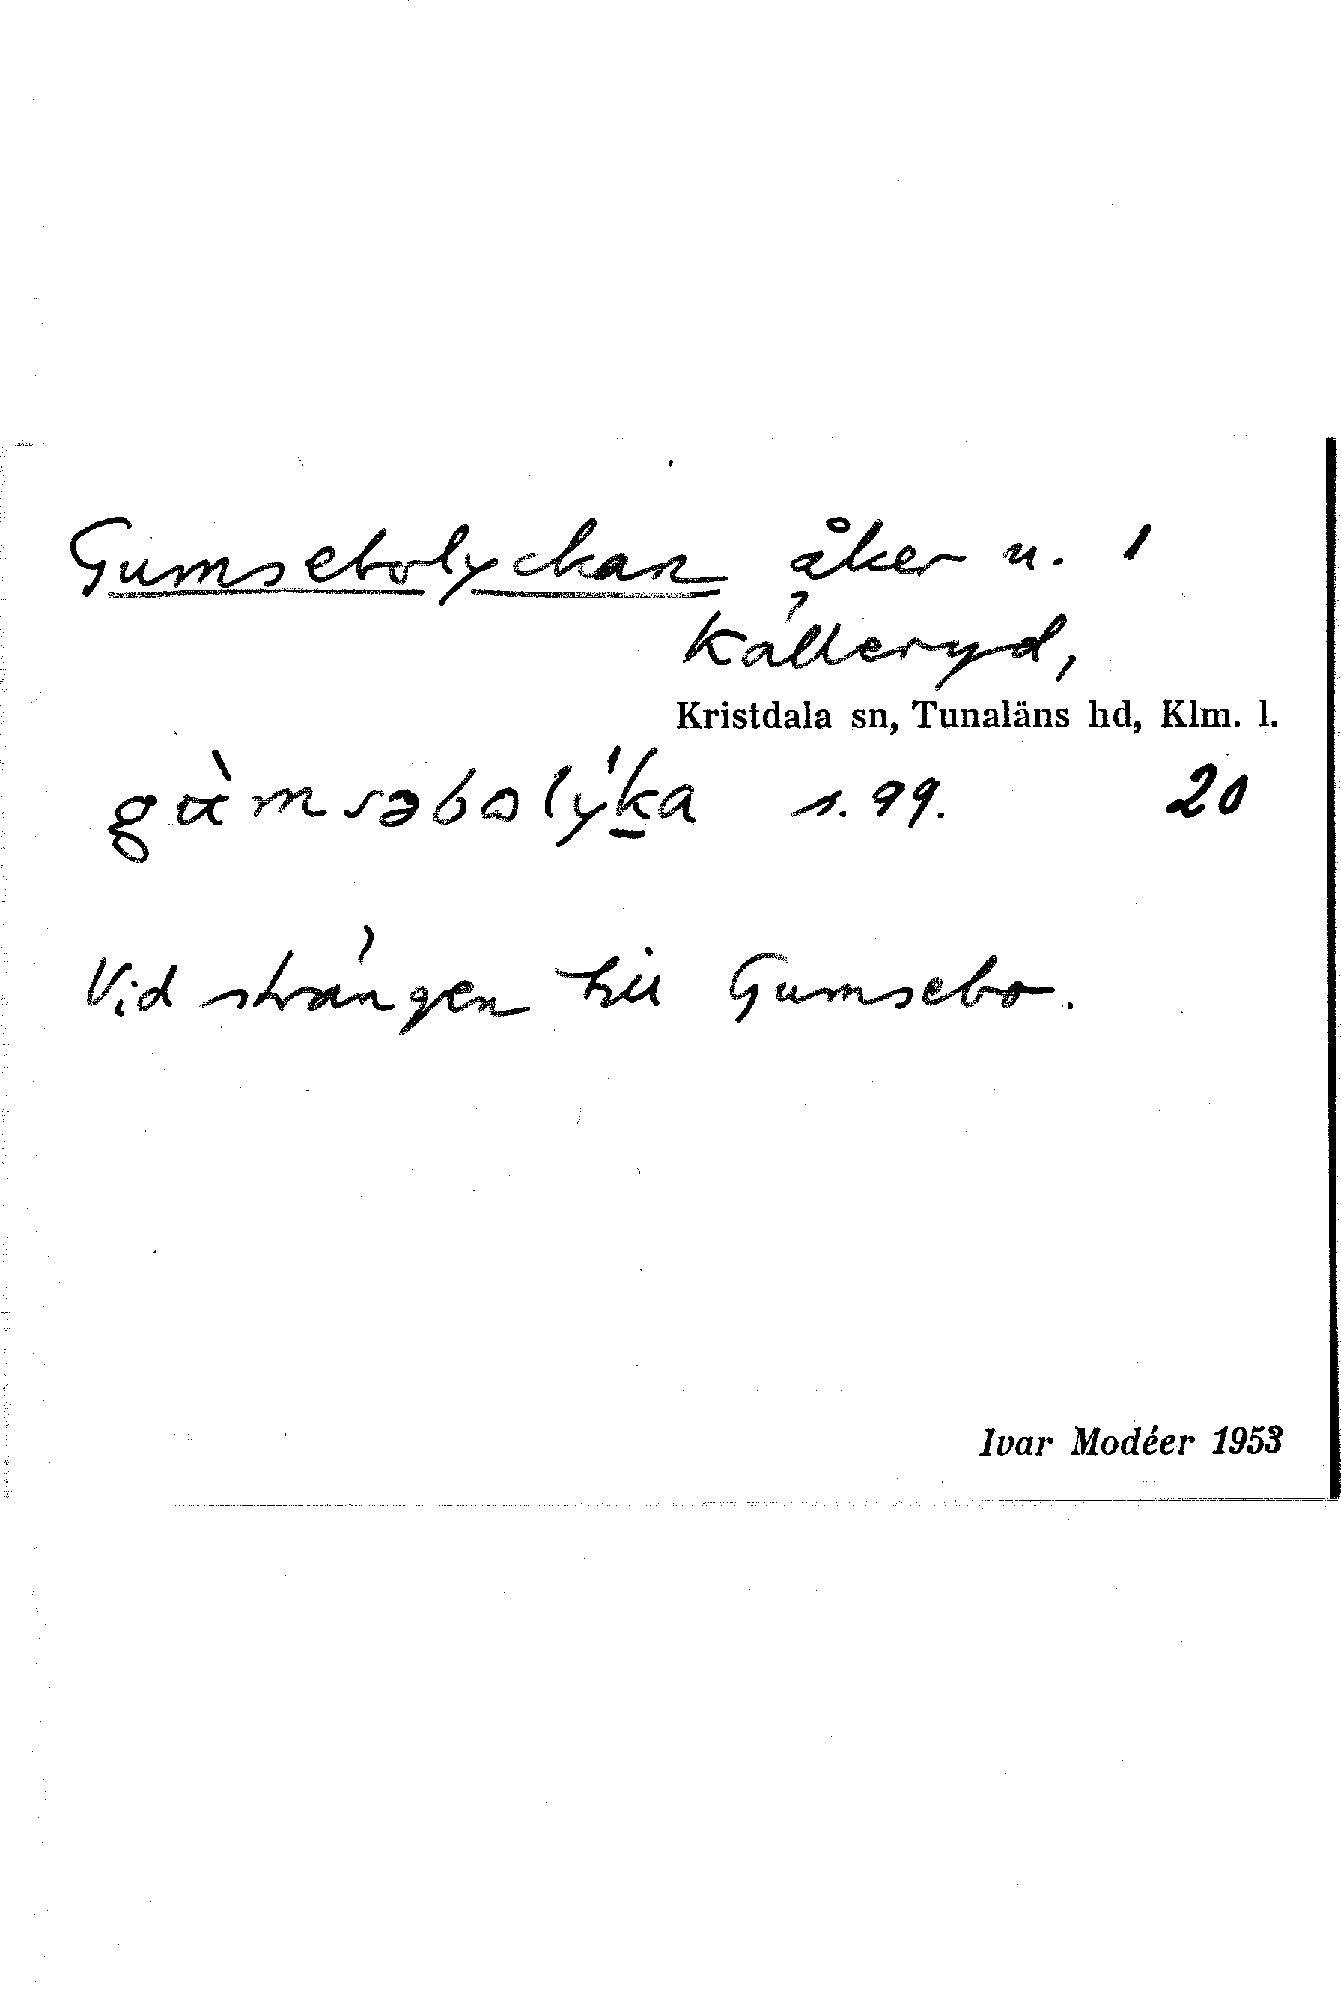 Gumsebolyckan åker u. 1
Källeryd,
Kristdala sn, Tunaläns hd, Klm. l.
s. 99. 20
Vid strängen till Gumsebo.
Ivar Modéer 1953